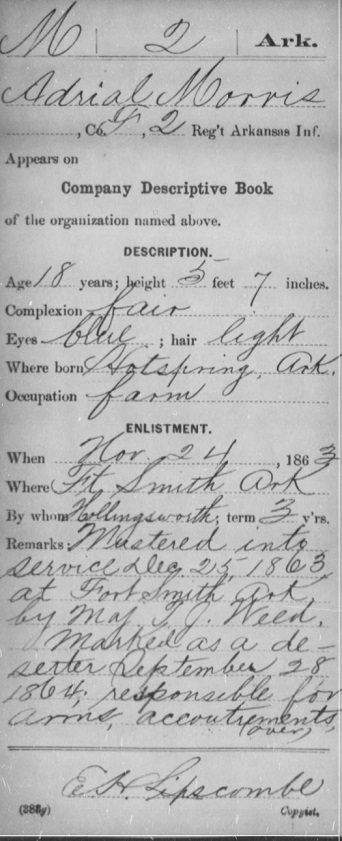 M | 2 | Ark.
Adrial Morris
, Co. F, 2 Reg't Arkansas Inf.
Appears on
Company Descriptive Book
of the organization named above.
DESCRIPTION.
Age 18 years; height 5 feet 7 inches.
Complexion fair
Eyes blue ; hair light
Where born Hotspring, Ark.
Occupation farm
ENLISTMENT.
When Nov. 24 , 1863
Where Ft Smith Ark
By whom Hollingsworth; term 3 y'rs.
Remarks: Mustered into
service Dec. 25, 1863
at Fort Smith Ark.
by Maj. J. Weed.
Marked as a de-
serter September 28
1864; responsible for
arms, accoutrements,
(over)
E. H. Lipscombe
(383g) Copyist.